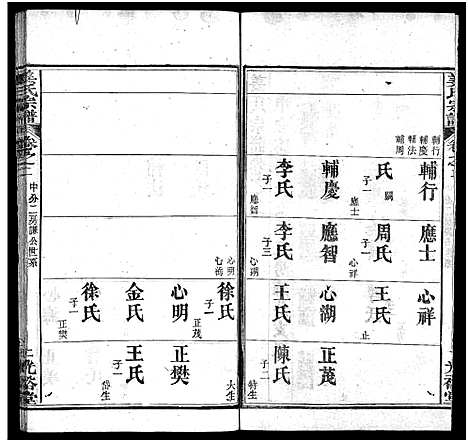 姜氏宗譜
卷之二
光裕堂
輔行
輔慶
輔法
輔周
輔行
氏
子一
嗣
應士
輔慶
李氏
子一
應智
應士
周氏
子一
心祥
應智
李氏
子三
心湖
心明
心祥
王氏
止
心湖
王氏
子一
正茂
徐氏
子一
正茂
心明
金氏
徐氏
子一
正樊
正茂
陳氏
子一
特生
大生
正樊
王氏
子一
岱生
姜氏宗譜
卷之二
中分二房謙公世系
上
光裕堂